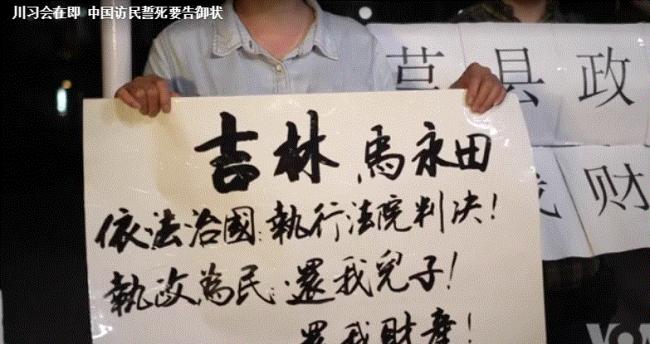 川习会在即 中国访民誓死要告御状
吉林 馬永田
依法治國:執行法院判决!
執政為民:還我兒子!
還我财產!
莒县政
财
VOA